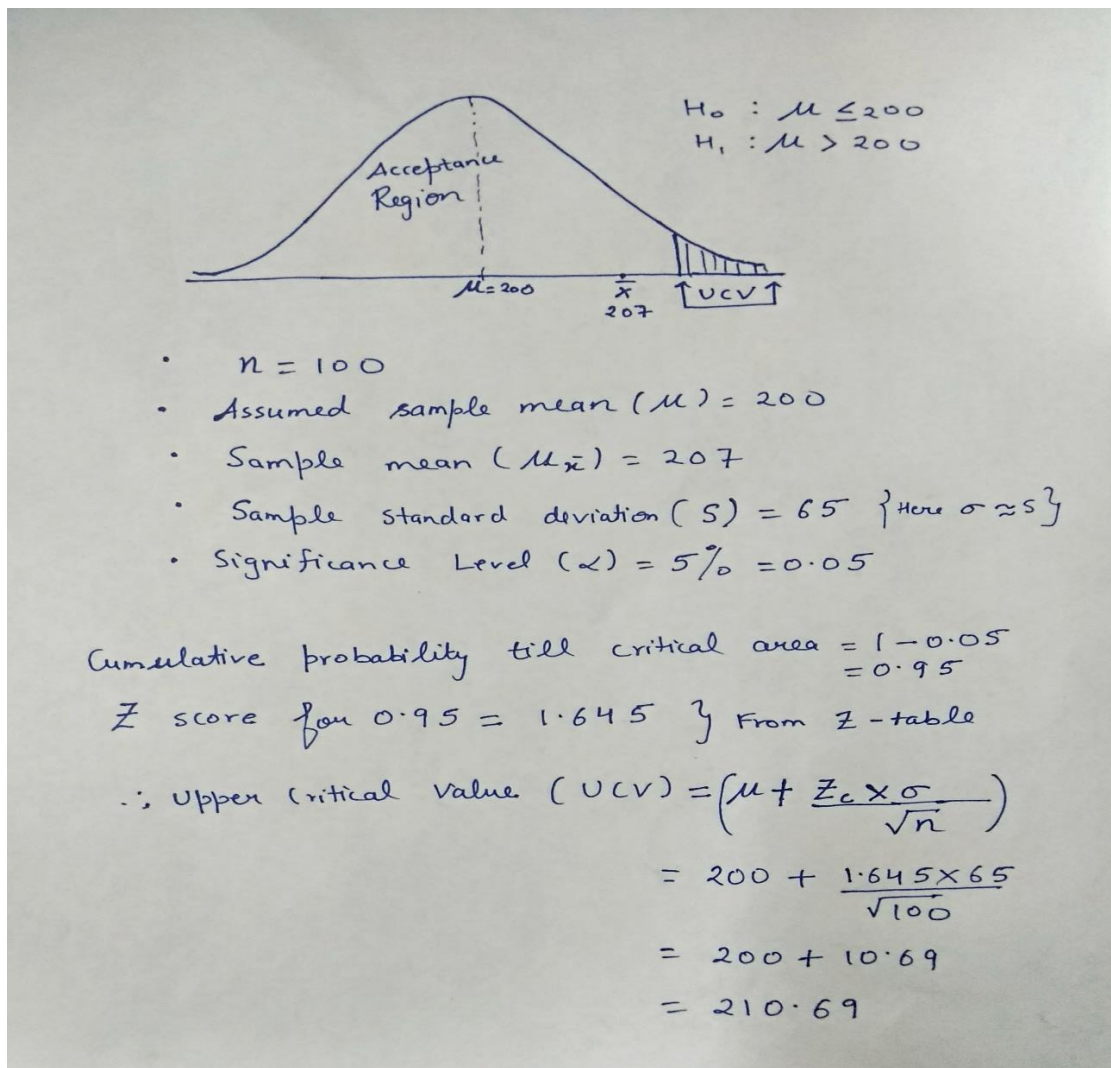 H₀ : μ ≤ 200
H₁ : μ > 200
Acceptance
Region
μ = 200
x̄
207
↑ UCV ↑
• n = 100
• Assumed sample mean (μ) = 200
• Sample mean (μx̄) = 207
• Sample standard deviation (S) = 65 {Here σ ≈ S}
• Significance Level (α) = 5% = 0.05
Cumulative probability till critical area = 1 - 0.05
= 0.95
Z score for 0.95 = 1.645 } From Z-table
∴ Upper Critical Value (UCV) = (μ + Zc × σ / √n)
= 200 + 1.645 × 65 / √100
= 200 + 10.69
= 210.69